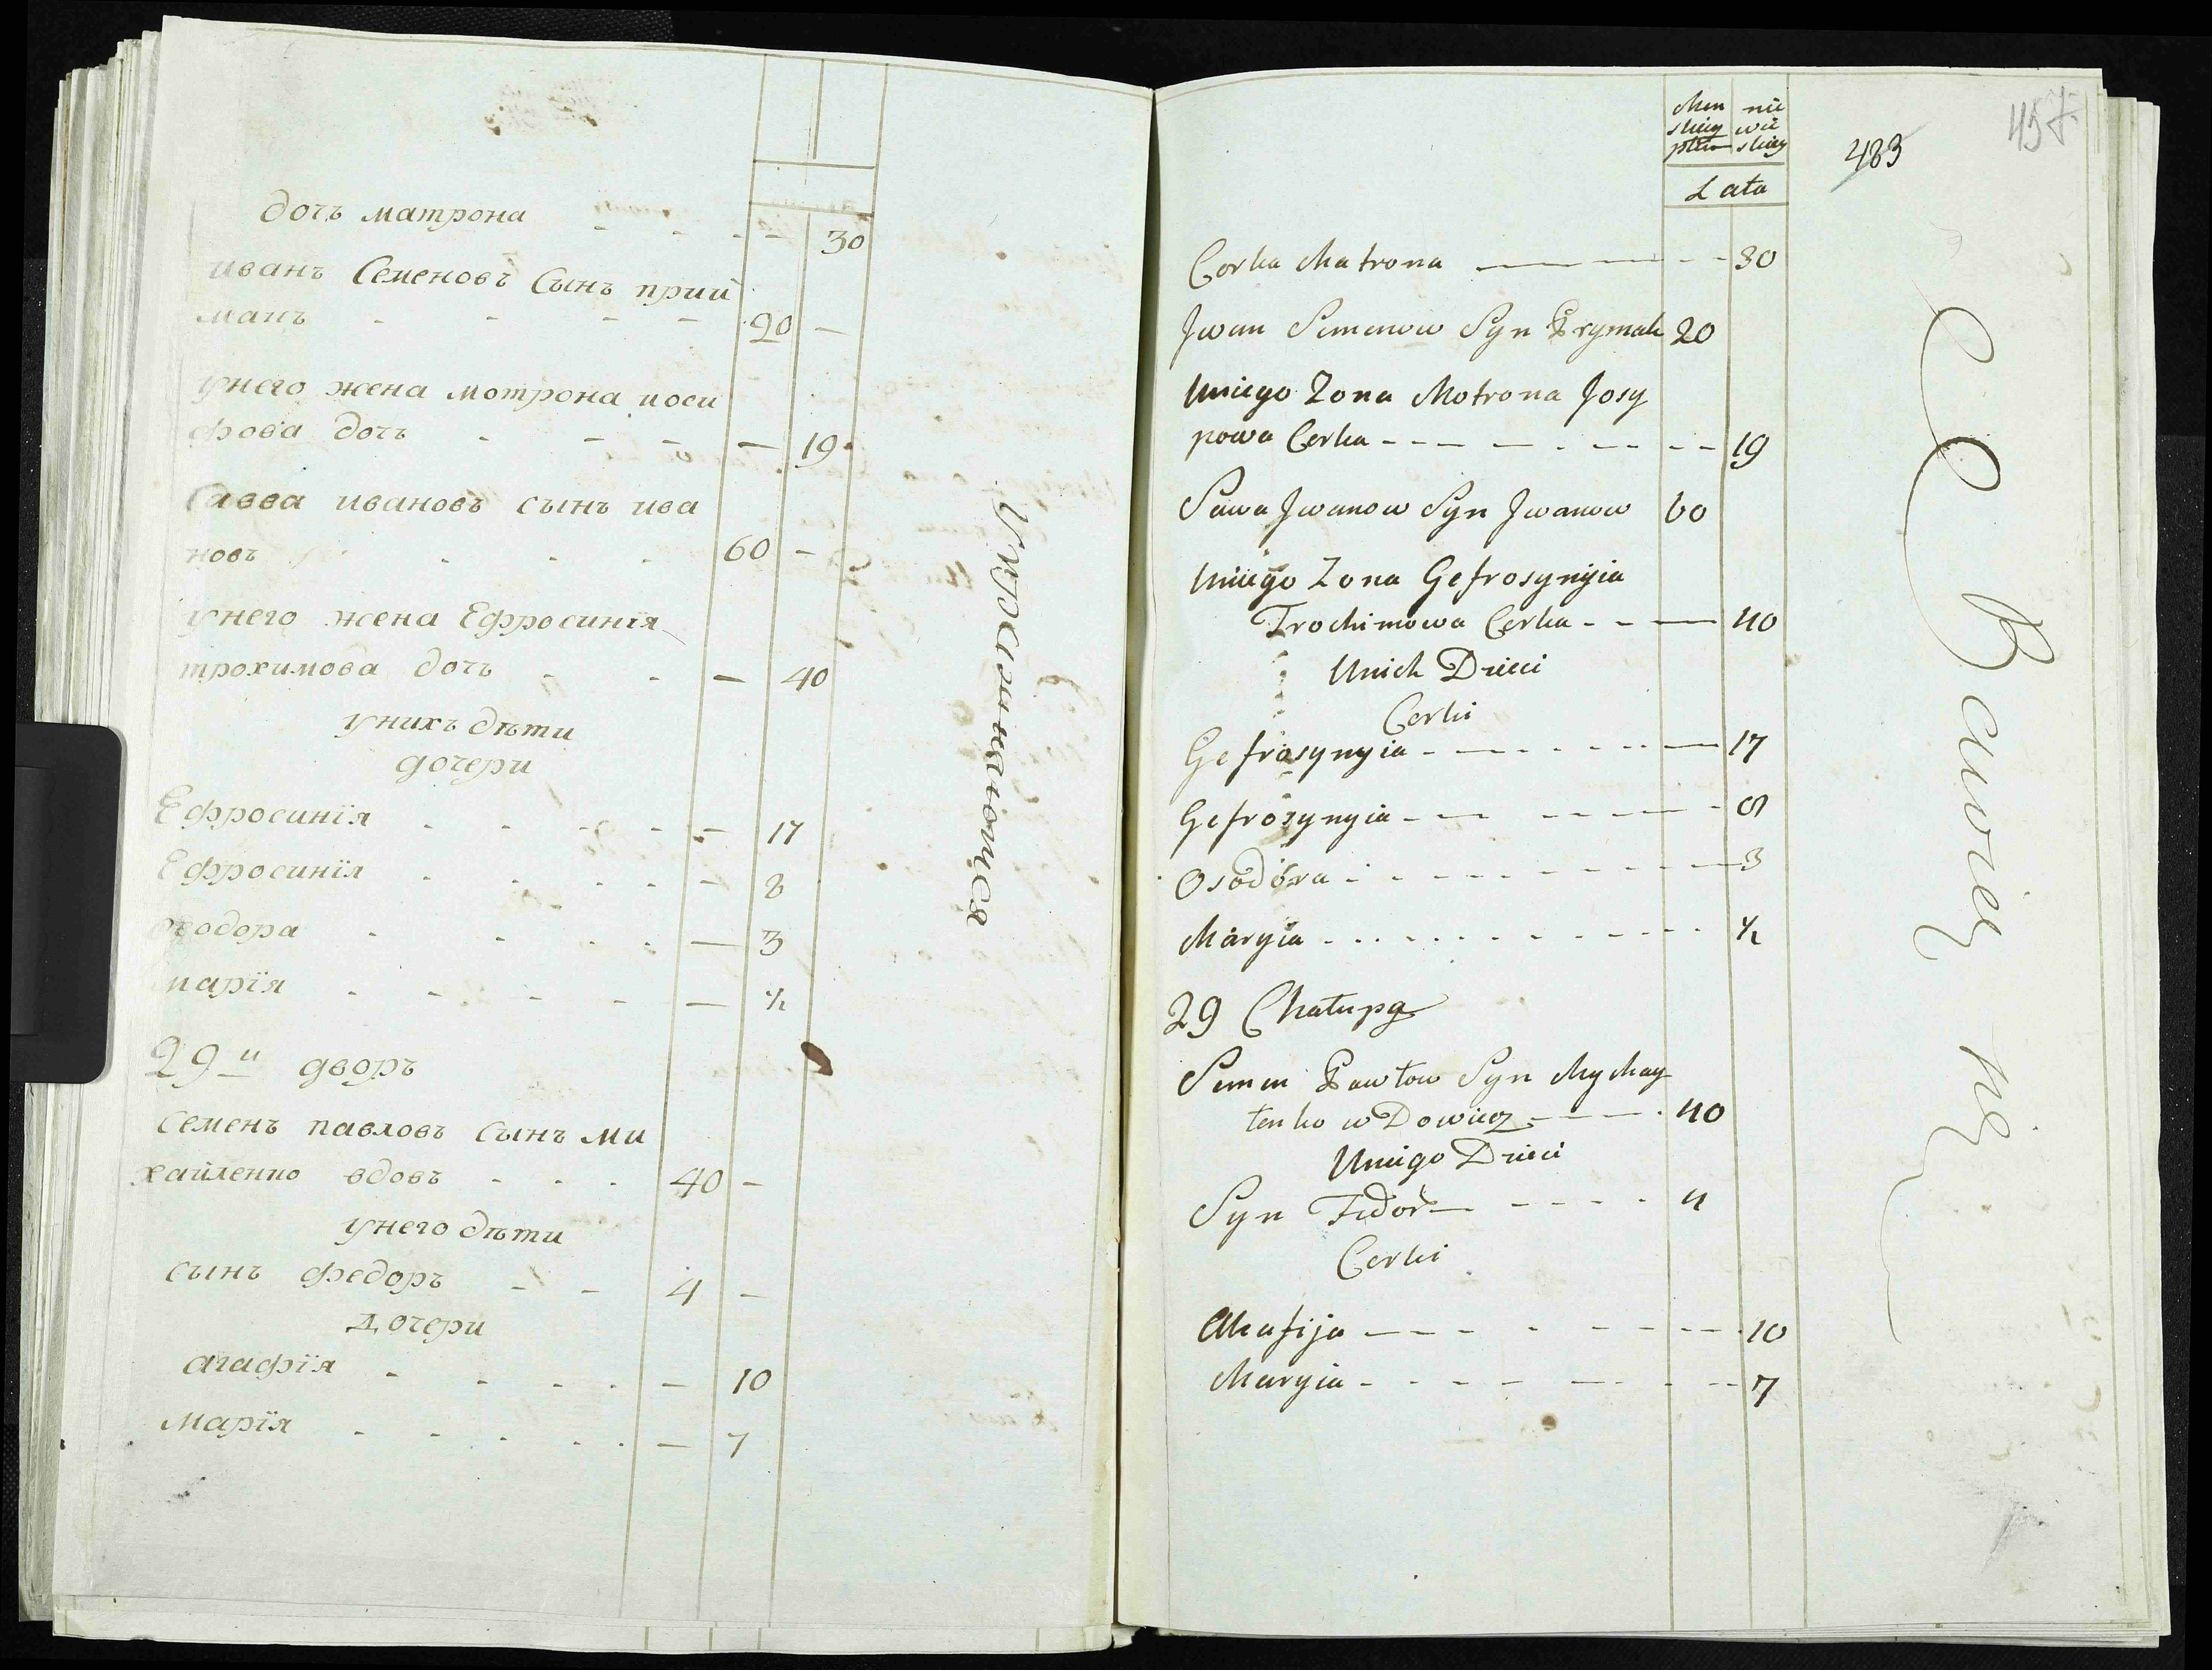 дочь матрона - - - - 30
иванъ Семеновъ Сынъ прий
макъ - - - - 20 -
унего жена мотрона иоси
фова дочь - - - - 19
Савва ивановъ сынъ ива
новъ - - - 60 -
унего жена Ефросинïя
трохимова дочь - - - 40
унихъ дѣти
дочери
Ефросинïя - - - - - 17
Ефросинïя - - - - - 8
феодора - - - - - 3
марïя - - - - - ½
29й дворъ
Семенъ павловъ Сынъ ми
хайленко вдовъ - - - 40 -
унего дѣти
сынъ федоръ - - 4 -
дочери
агафïя - - - - - 10
марïя - - - - - - 7
Упражняются
Men nie
skiey wie
płci skiey
Lata
483
457
Corka Matrona - - - - 30
Jwan Semenow Syn Prymak 20
Uniego Zona Motrona Josy
powa Corka - - - - - - - - 19
Sawa Jwanow Syn Jwanow 60
Uniego Zona Gefrosynyia
Trochimowa Corka - - - 40
Unich Dzieci
Corki
Gefrosynyia - - - - - - - 17
Gefrosynyia - - - - - - - 8
Osodora - - - - - - - - - 3
Maryia - - - - - - - - - - ½
29 Chałupa
Semen Pawłow Syn Mychay
łenko wDowiec - - - - 40
Uniego Dzieci
Syn Fedor - - - - - 4
Corki
Akafija - - - - - - - - 10
Maryia - - - - - - - - 7